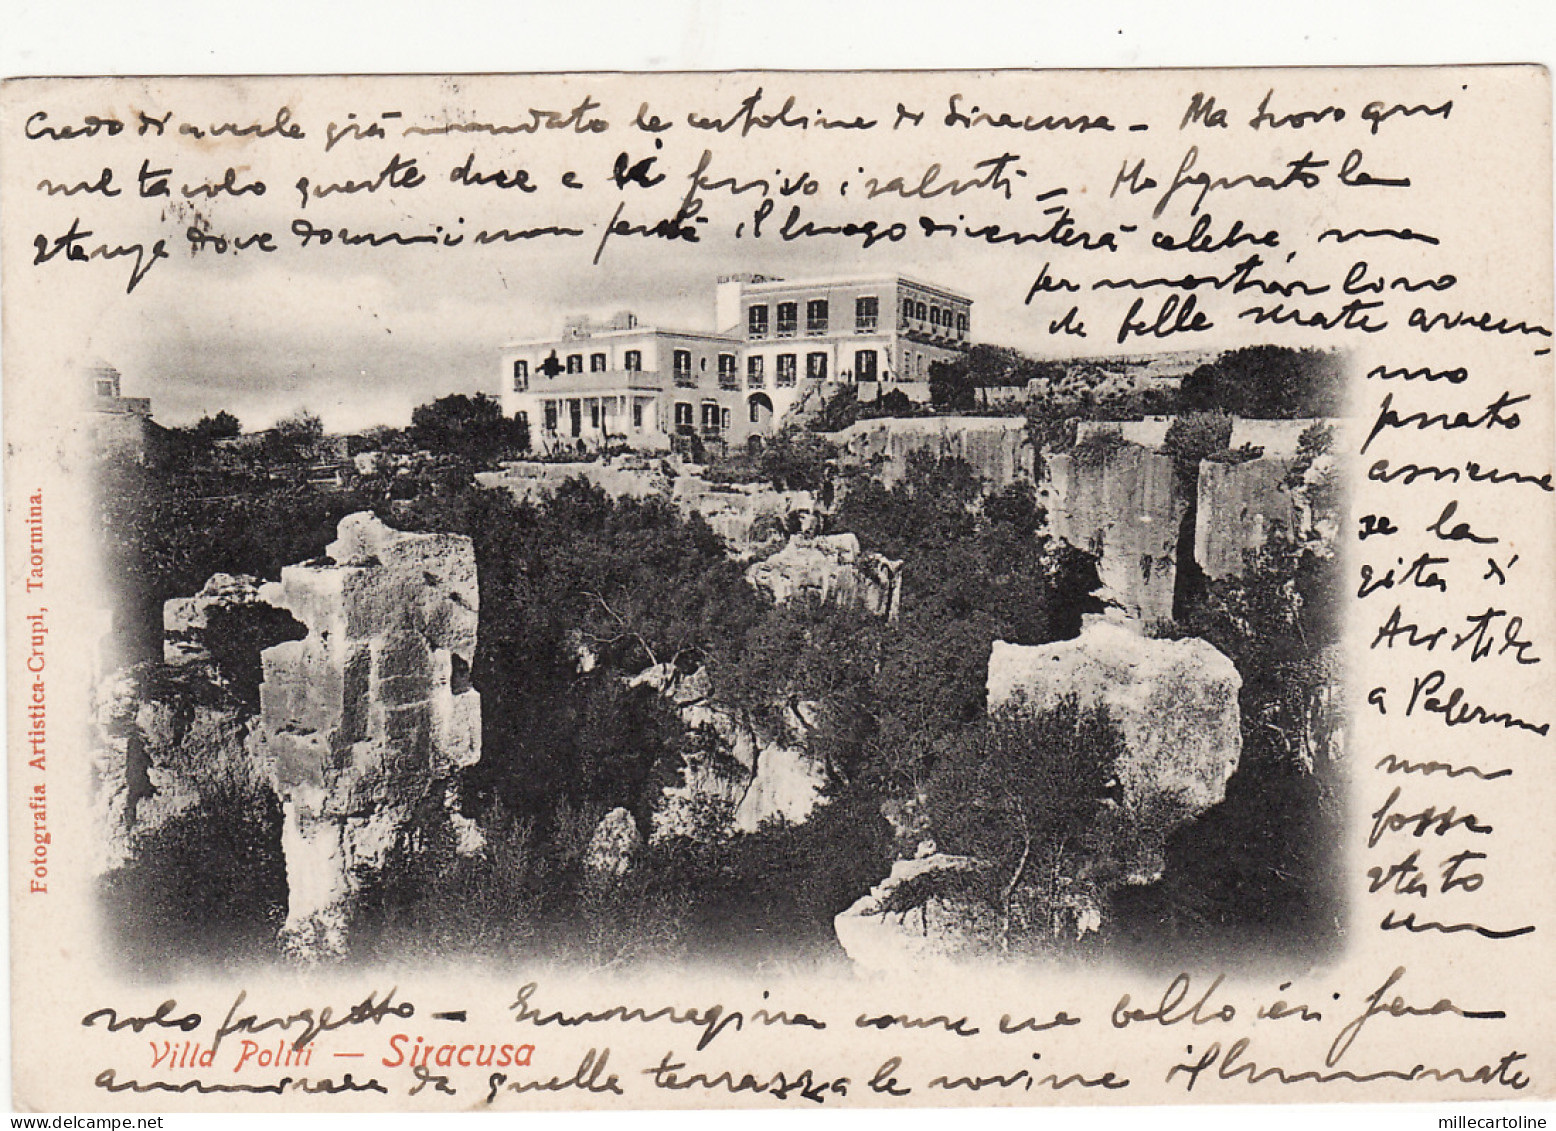 Credo di averle già mandato le cartoline di Siracusa – Ma trovo qui
nel tavolo queste due e Le scrivo i saluti – Ho segnato la
stanza dove dormii non perchè il luogo diventerà celebre, ma
per mostrar loro
che belle serate avrem
mo
passato
assieme
se la
gita di
Aristide
a Palermo
non
fosse
stato
un
solo progetto – Immagina come era bello ieri sera
ammirare da quella terrazza le rovine illuminate
Villa Politi — Siracusa
Fotografia Artistica-Crupi, Taormina.
millecartoline